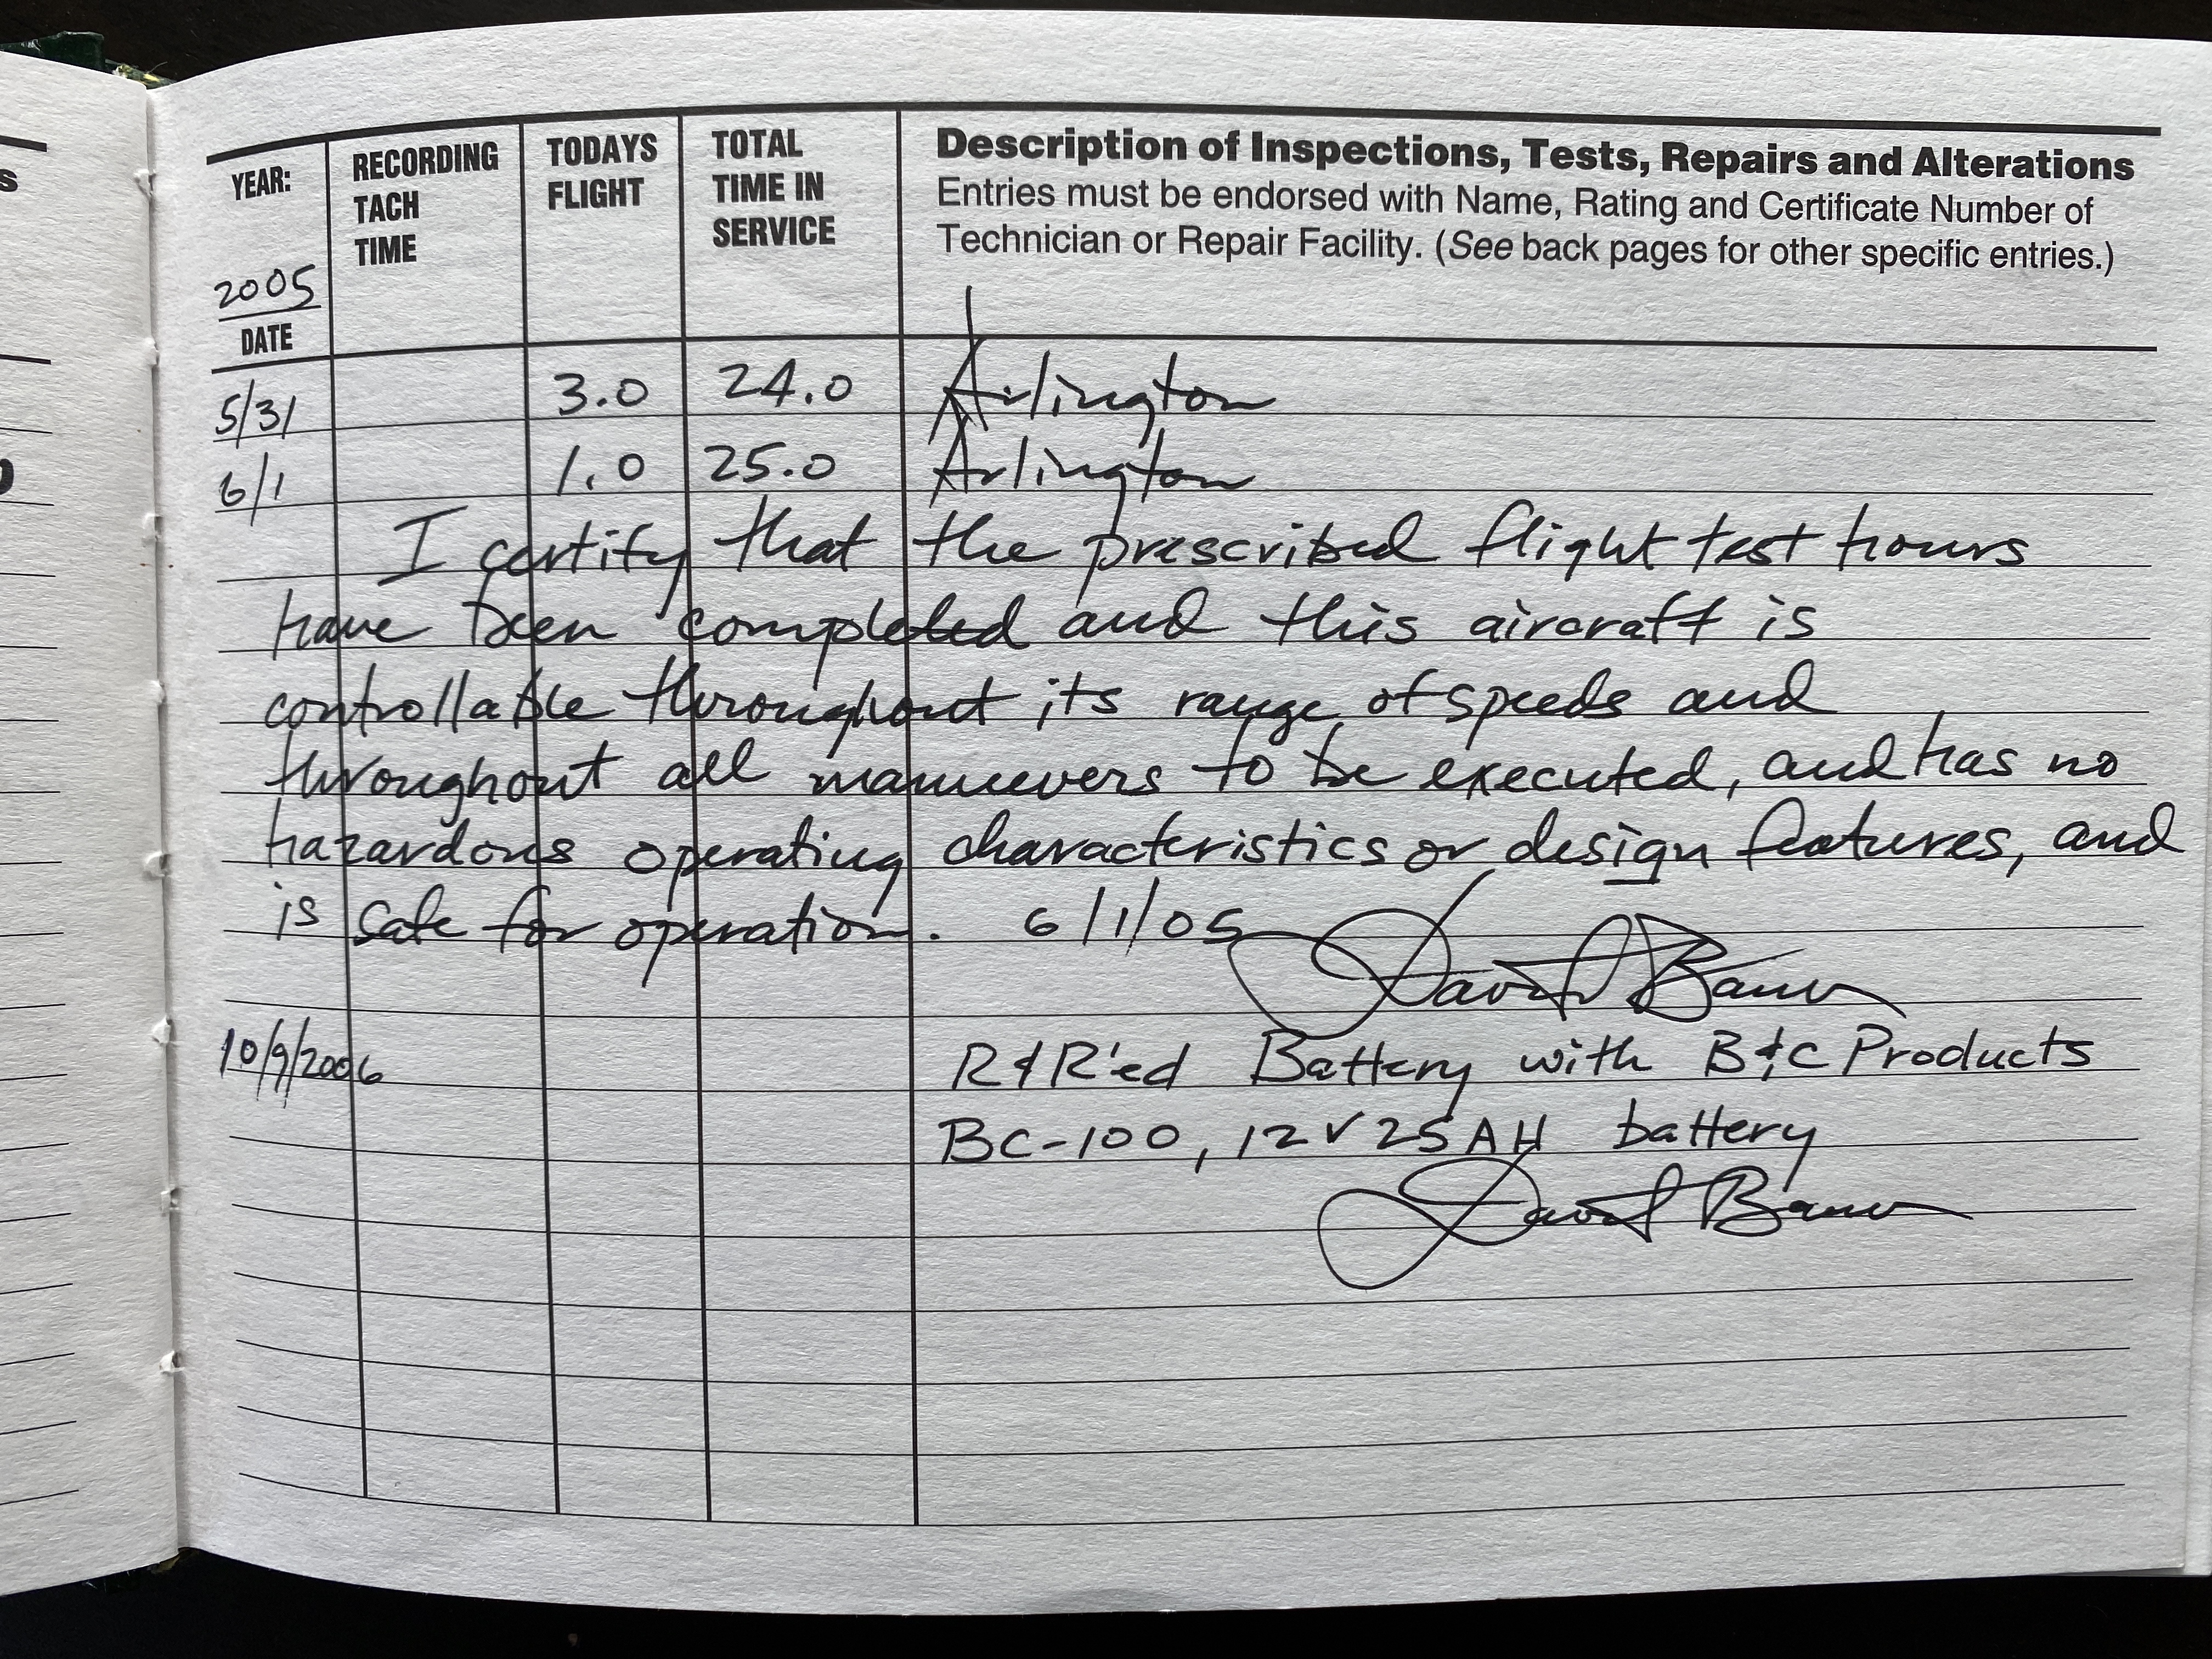 s
YEAR: RECORDING TACH TIME TODAYS FLIGHT TOTAL TIME IN SERVICE Description of Inspections, Tests, Repairs and Alterations
Entries must be endorsed with Name, Rating and Certificate Number of
Technician or Repair Facility. (See back pages for other specific entries.)
2005
DATE
5/31 3.0 24.0 Arlington
6/1 1.0 25.0 Arlington
I certify that the prescribed flight test hours
have been completed and this aircraft is
controllable throughout its range of speeds and
throughout all maneuvers to be executed, and has no
hazardous operating characteristics or design features, and
is safe for operation. 6/1/05
David Bauer
10/9/2006 R&R'ed Battery with B&C Products
BC-100, 12V 25AH battery
David Bauer